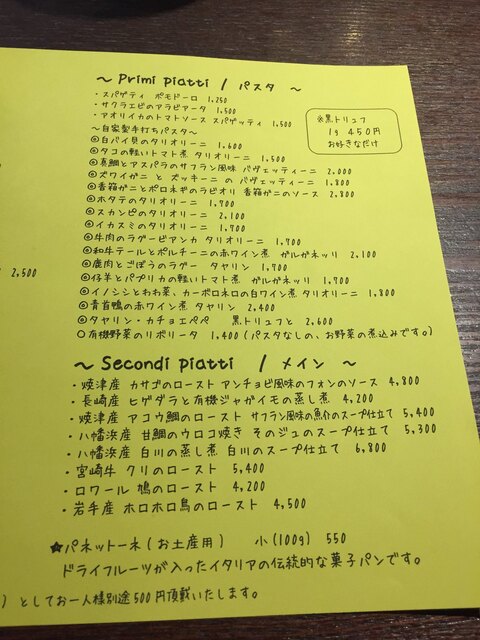 ～ Primi piatti / パスタ ～
・スパゲティ ポモドーロ 1,250
・サクラエビのアラビアータ 1,500
・アオリイカのトマトソース スパゲッティ 1,500
～自家製手打ちパスタ～
◎白バイ貝のタリオリーニ 1,600
◎タコの軽いトマト煮 タリオリーニ 1,500
◎真鯛とアスパラのサフラン風味 バヴェッティーニ 2,000
◎ズワイガニ と ズッキーニ の バヴェッティーニ 1,800
◎香箱ガニとポロネギのラビオリ 香箱ガニのソース 2,800
◎ホタテのタリオリーニ 1,700
◎スカンピのタリオリーニ 2,100
◎イカスミのタリオリーニ 1,700
◎牛肉のラグービアンカ タリオリーニ 1,700
◎和牛テールとポルチーニの赤ワイン煮 ガルガネッリ 2,100
◎鹿肉とごぼうのラグー タヤリン 1,700
◎仔羊とパプリカの軽いトマト煮 ガルガネッリ 1,700
◎イノシシとわわ菜、カーボロネロの白ワイン煮 タリオリーニ 1,800
◎青首鴨の赤ワイン煮 タヤリン 2,400
◎タヤリン・カチョエペペ 黒トリュフと 2,600
○有機野菜のリボリータ 1,400(パスタなしの、お野菜の煮込みです。)
※黒トリュフ
1g 450円
お好きなだけ
2,500
～ Secondi piatti / メイン ～
・焼津産 カサゴのロースト アンチョビ風味のフォンのソース 4,800
・長崎産 ヒゲダラと有機ジャガイモの蒸し煮 4,200
・焼津産 アコウ鯛のロースト サフラン風味の魚介のスープ仕立て 5,400
・八幡浜産 甘鯛のウロコ焼き そのジュのスープ仕立て 5,300
・八幡浜産 白川の蒸し煮 白川のスープ仕立て 6,800
・宮崎牛 クリのロースト 5,400
・ロワール 鳩のロースト 4,200
・岩手産 ホロホロ鳥のロースト 4,500
★パネットーネ(お土産用) 小(100g) 550
ドライフルーツが入ったイタリアの伝統的な菓子パンです。
) としてお一人様別途500円頂戴いたします。